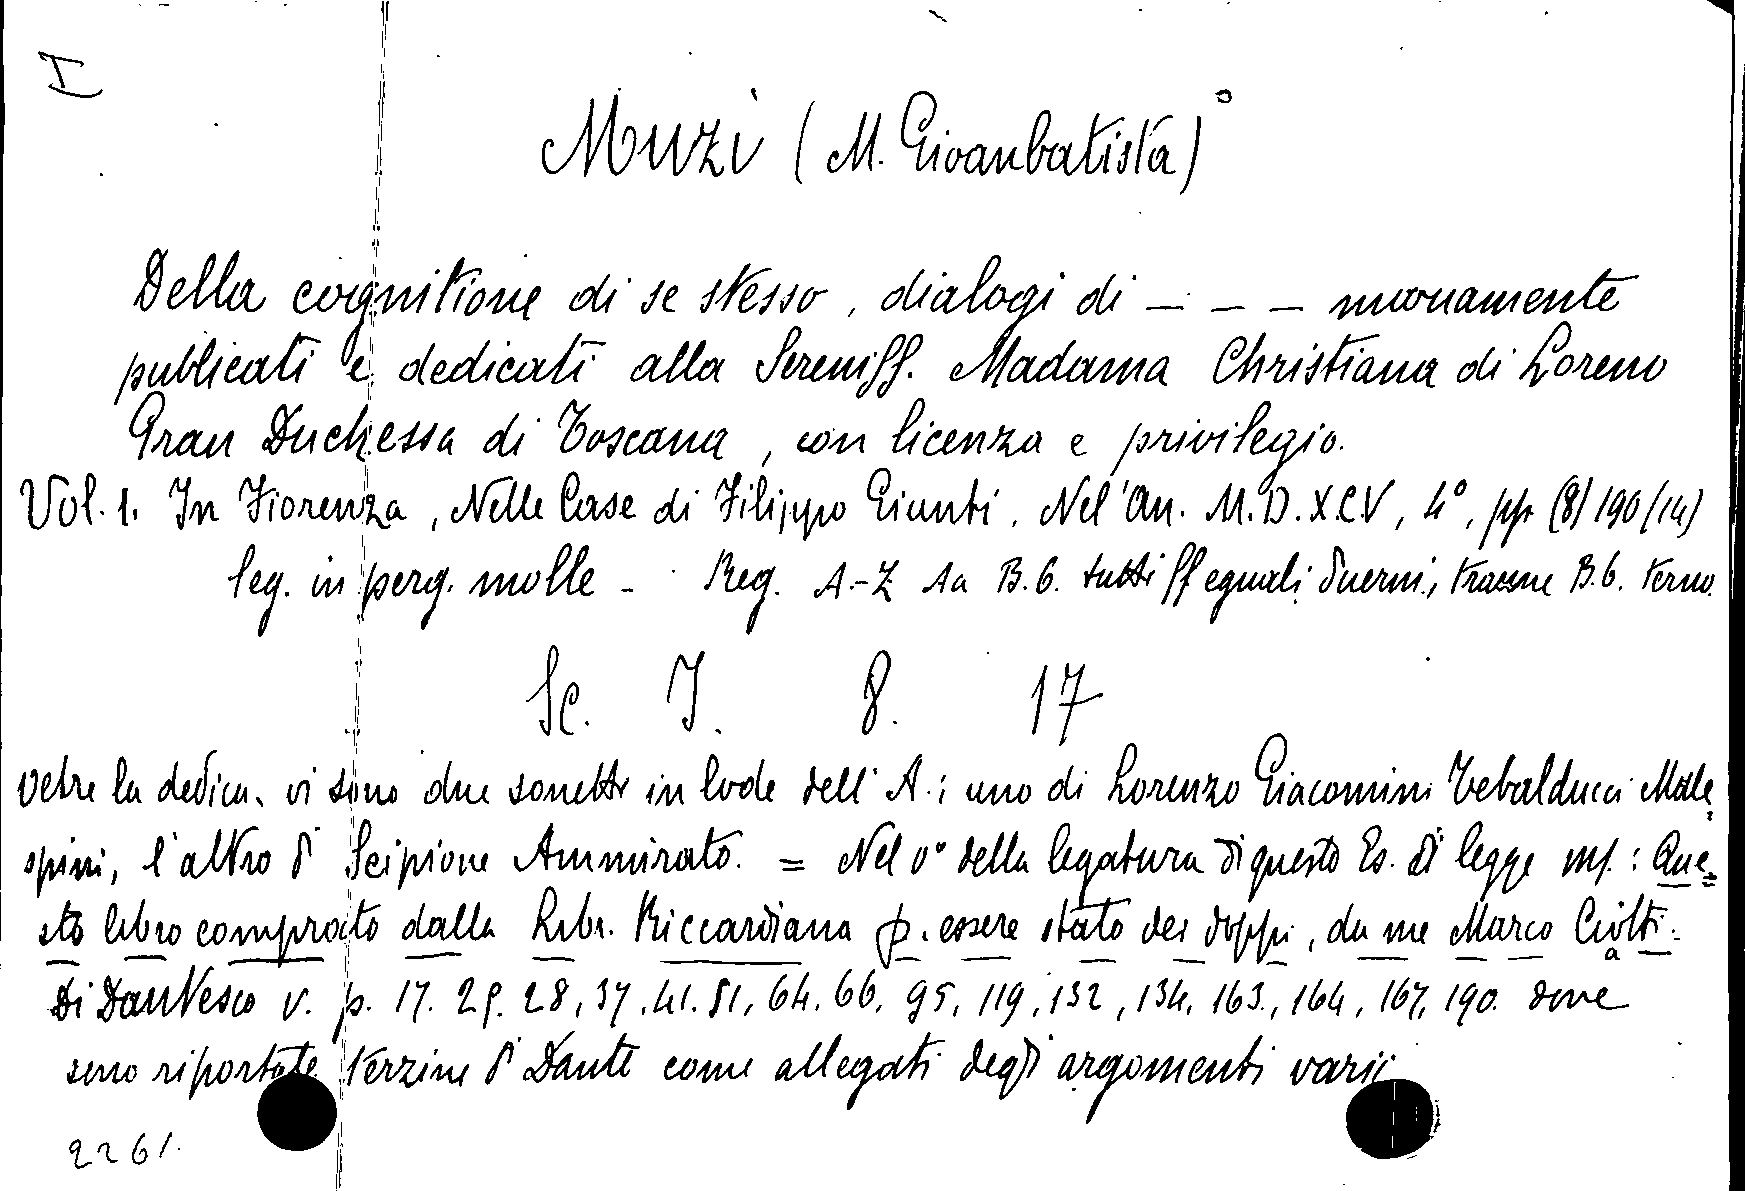 I
Muzi (M. Gioanbatista)°
Della cognitione di se stesso, dialogi di _ _ _ nuovamente
publicati e dedicati alla Sereniss. Madama Christiana di Loreno
Gran Duchessa di Toscana, con licenza e privilegio.
Vol. 1. In Fiorenza, Nelle Case di Filippo Giunti. Nel'An. M.D.XCV, 4°, pp (8) 190 (14)
leg. in perg. molle - Reg. A-Z Aa B.b. tutti ff eguali duerni, traenne B.b. terno.
Sc. I. 8. 17
oltre la dedica, vi sono due sonetti in lode dell'A.; uno di Lorenzo Giacomini Tebalducci Male
spini, l'altro di Scipione Ammirato. = Nel v° della legatura di questo Es. si legge ms.: Que=
sto libro comprato dalla Libr. Riccardiana p. essere stato dei doppi, da me Marco
Di Dantesco v. p. 17. 25. 28, 37, 41. 51, 64. 66, 95, 119, 132, 134, 163, 164, 167, 190. dove
sono riportate terzine di Dante come allegati degli argomenti varii
2261.